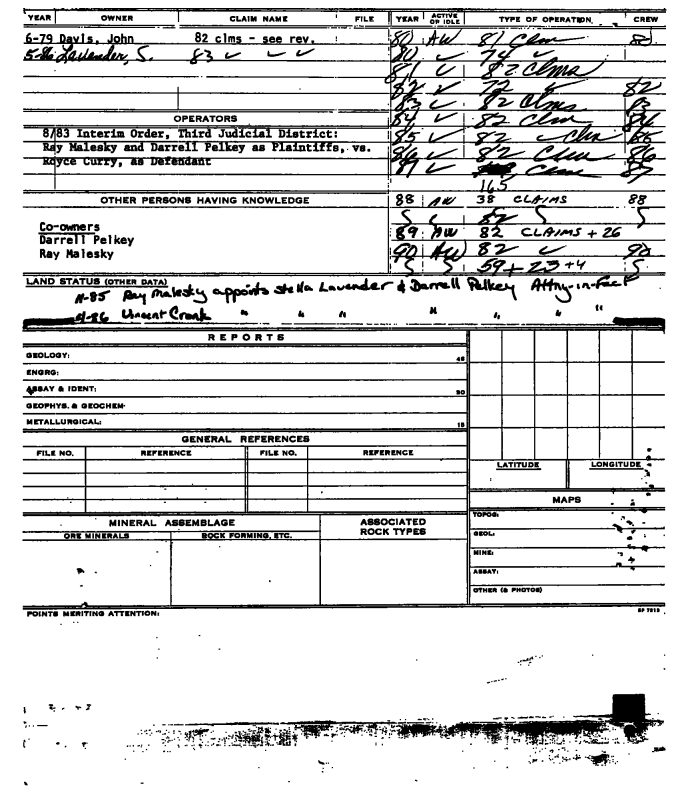 YEAR OWNER CLAIM NAME FILE YEAR ACTIVE OR IDLE TYPE OF OPERATION CREW
6-79 Davis, John 82 clms - see rev. 80 AW 81 Clm 80
Lavender, S. 83 ✓ ✓ ✓ 80 ✓ 74 ✓
81 ✓ 82 Clms
82 ✓ 72 ✓ 82
83 ✓ 82 Clms 83
OPERATORS 84 ✓ 82 Clm 84
8/83 Interim Order, Third Judicial District: 85 ✓ 82 ✓ Clm 85
Ray Malesky and Darrell Pelkey as Plaintiffs, vs. 86 ✓ 82 Clm 86
Royce Curry, as Defendant 87 ✓ Clm 87
165
OTHER PERSONS HAVING KNOWLEDGE 88 AW 38 CLAIMS 88
82
Co-owners 89 AW 82 CLAIMS + 26
Darrell Pelkey
Ray Malesky 90 AW 82 ✓ 90
59+23+4
LAND STATUS (OTHER DATA)
11-85 Ray Malesky appoints Stella Lavender & Darrell Pelkey Attny-in-Fact
4-86 Vincent Cronk " " " " " " "
REPORTS
GEOLOGY: 45
ENGRG:
ASSAY & IDENT: 30
GEOPHYS. & GEOCHEM.
METALLURGICAL: 15
GENERAL REFERENCES
FILE NO. REFERENCE FILE NO. REFERENCE
LATITUDE LONGITUDE
MAPS
TOPOG:
MINERAL ASSEMBLAGE ASSOCIATED ROCK TYPES
ORE MINERALS ROCK FORMING, ETC.
GEOL:
MINE:
ASSAY:
OTHER (& PHOTOS)
POINTS MERITING ATTENTION: SP 7818